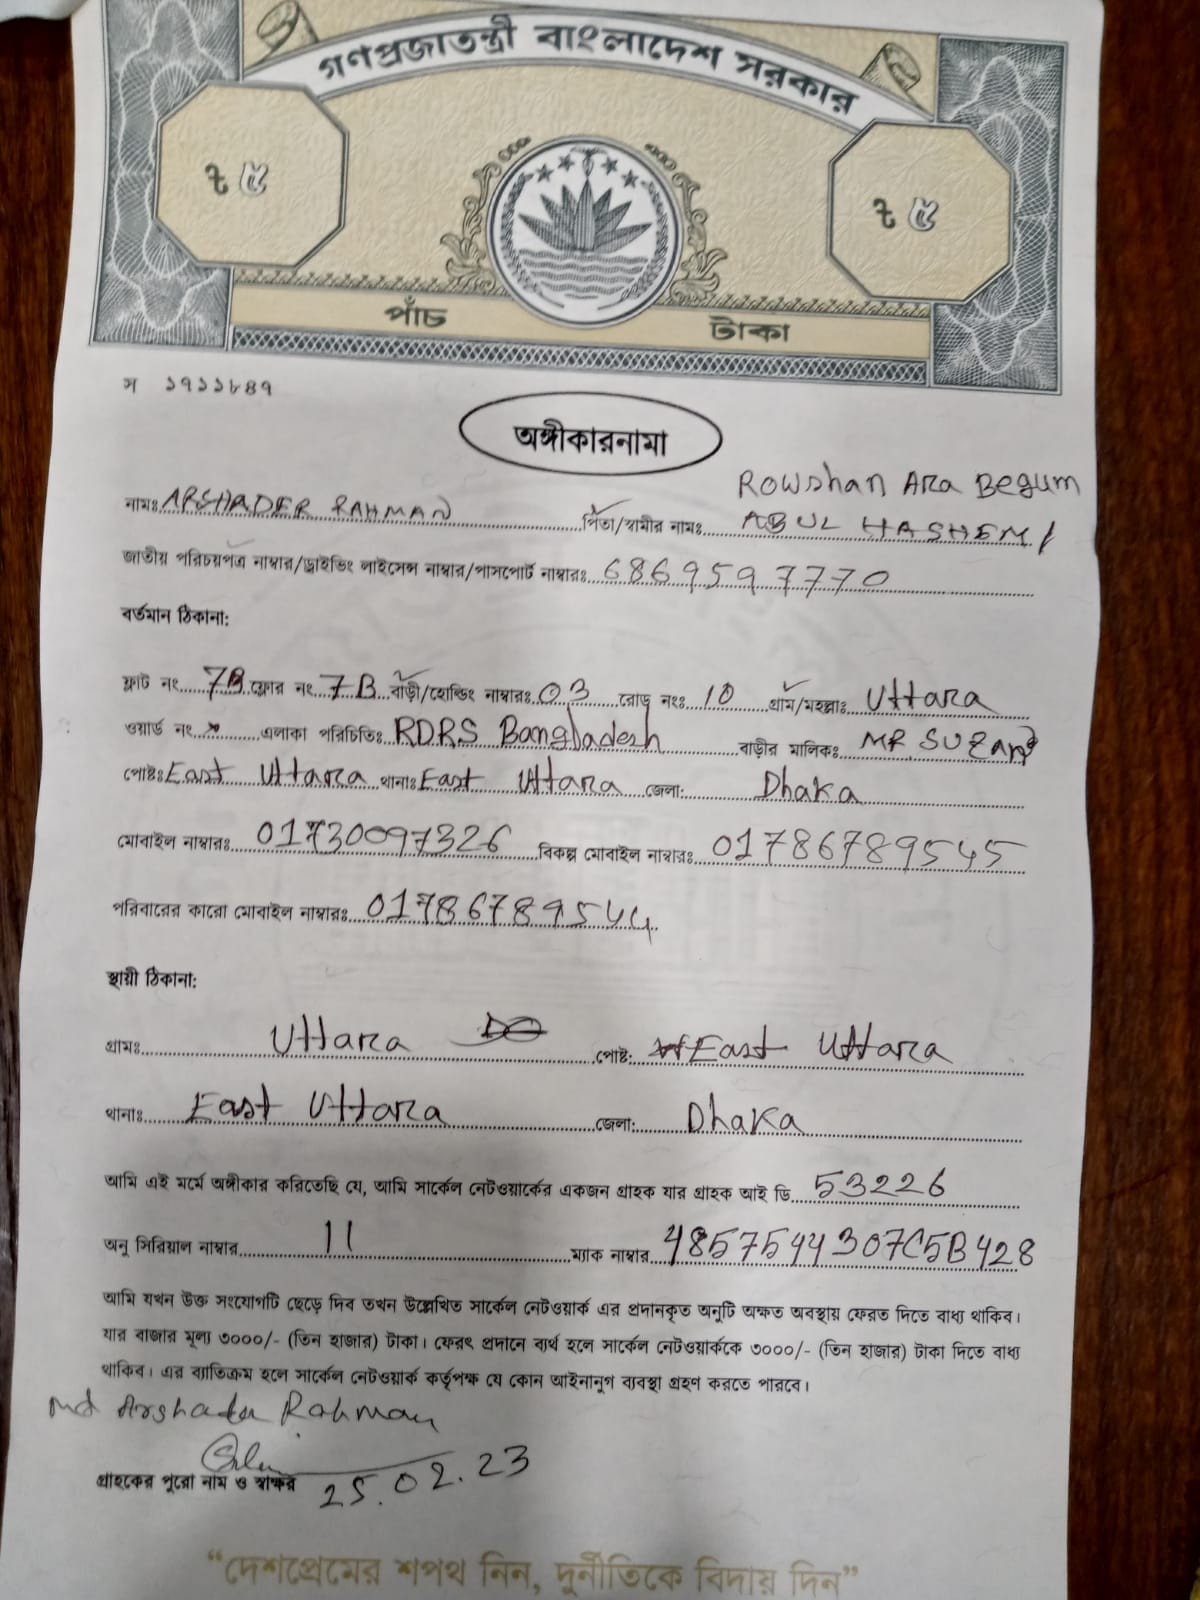 গণপ্রজাতন্ত্রী বাংলাদেশ সরকার
ট ৫ ট ৫
পাঁচ টাকা
স ১৭১১৮৪৭
অঙ্গীকারনামা
Rowshan Ara Begum
নামঃ ARSHADER RAHMAN পিতা/স্বামীর নামঃ ABUL HASHEM /
জাতীয় পরিচয়পত্র নাম্বার/ড্রাইভিং লাইসেন্স নাম্বার/পাসপোর্ট নাম্বারঃ 6869597770
বর্তমান ঠিকানা:
ফ্লাট নং 7B ফ্লোর নং 7B বাড়ী/হোল্ডিং নাম্বারঃ 03 রোড নংঃ 10 গ্রাম/মহল্লাঃ Uttara
ওয়ার্ড নং এলাকা পরিচিতিঃ RDRS Bangladesh বাড়ীর মালিকঃ MR SUZAN
পোষ্টঃ East Uttara থানাঃ East Uttara জেলা: Dhaka
মোবাইল নাম্বারঃ 01730097326 বিকল্প মোবাইল নাম্বারঃ 01786789545
পরিবারের কারো মোবাইল নাম্বারঃ 01786789544
স্থায়ী ঠিকানা:
গ্রামঃ Uttara পোষ্ট: East Uttara
থানাঃ East Uttara জেলা: Dhaka
আমি এই মর্মে অঙ্গীকার করিতেছি যে, আমি সার্কেল নেটওয়ার্কের একজন গ্রাহক যার গ্রাহক আই ডি 53226
অনু সিরিয়াল নাম্বার 11 ম্যাক নাম্বার 48575444307C5B428
আমি যখন উক্ত সংযোগটি ছেড়ে দিব তখন উল্লেখিত সার্কেল নেটওয়ার্ক এর প্রদানকৃত অনুটি অক্ষত অবস্থায় ফেরত দিতে বাধ্য থাকিব।
যার বাজার মূল্য ৩০০০/- (তিন হাজার) টাকা। ফেরৎ প্রদানে ব্যর্থ হলে সার্কেল নেটওয়ার্ককে ৩০০০/- (তিন হাজার) টাকা দিতে বাধ্য
থাকিব। এর ব্যাতিক্রম হলে সার্কেল নেটওয়ার্ক কর্তৃপক্ষ যে কোন আইনানুগ ব্যবস্থা গ্রহণ করতে পারবে।
Md Arshader Rahman
গ্রাহকের পুরো নাম ও স্বাক্ষর 25.02.23
“দেশপ্রেমের শপথ নিন, দুর্নীতিকে বিদায় দিন”